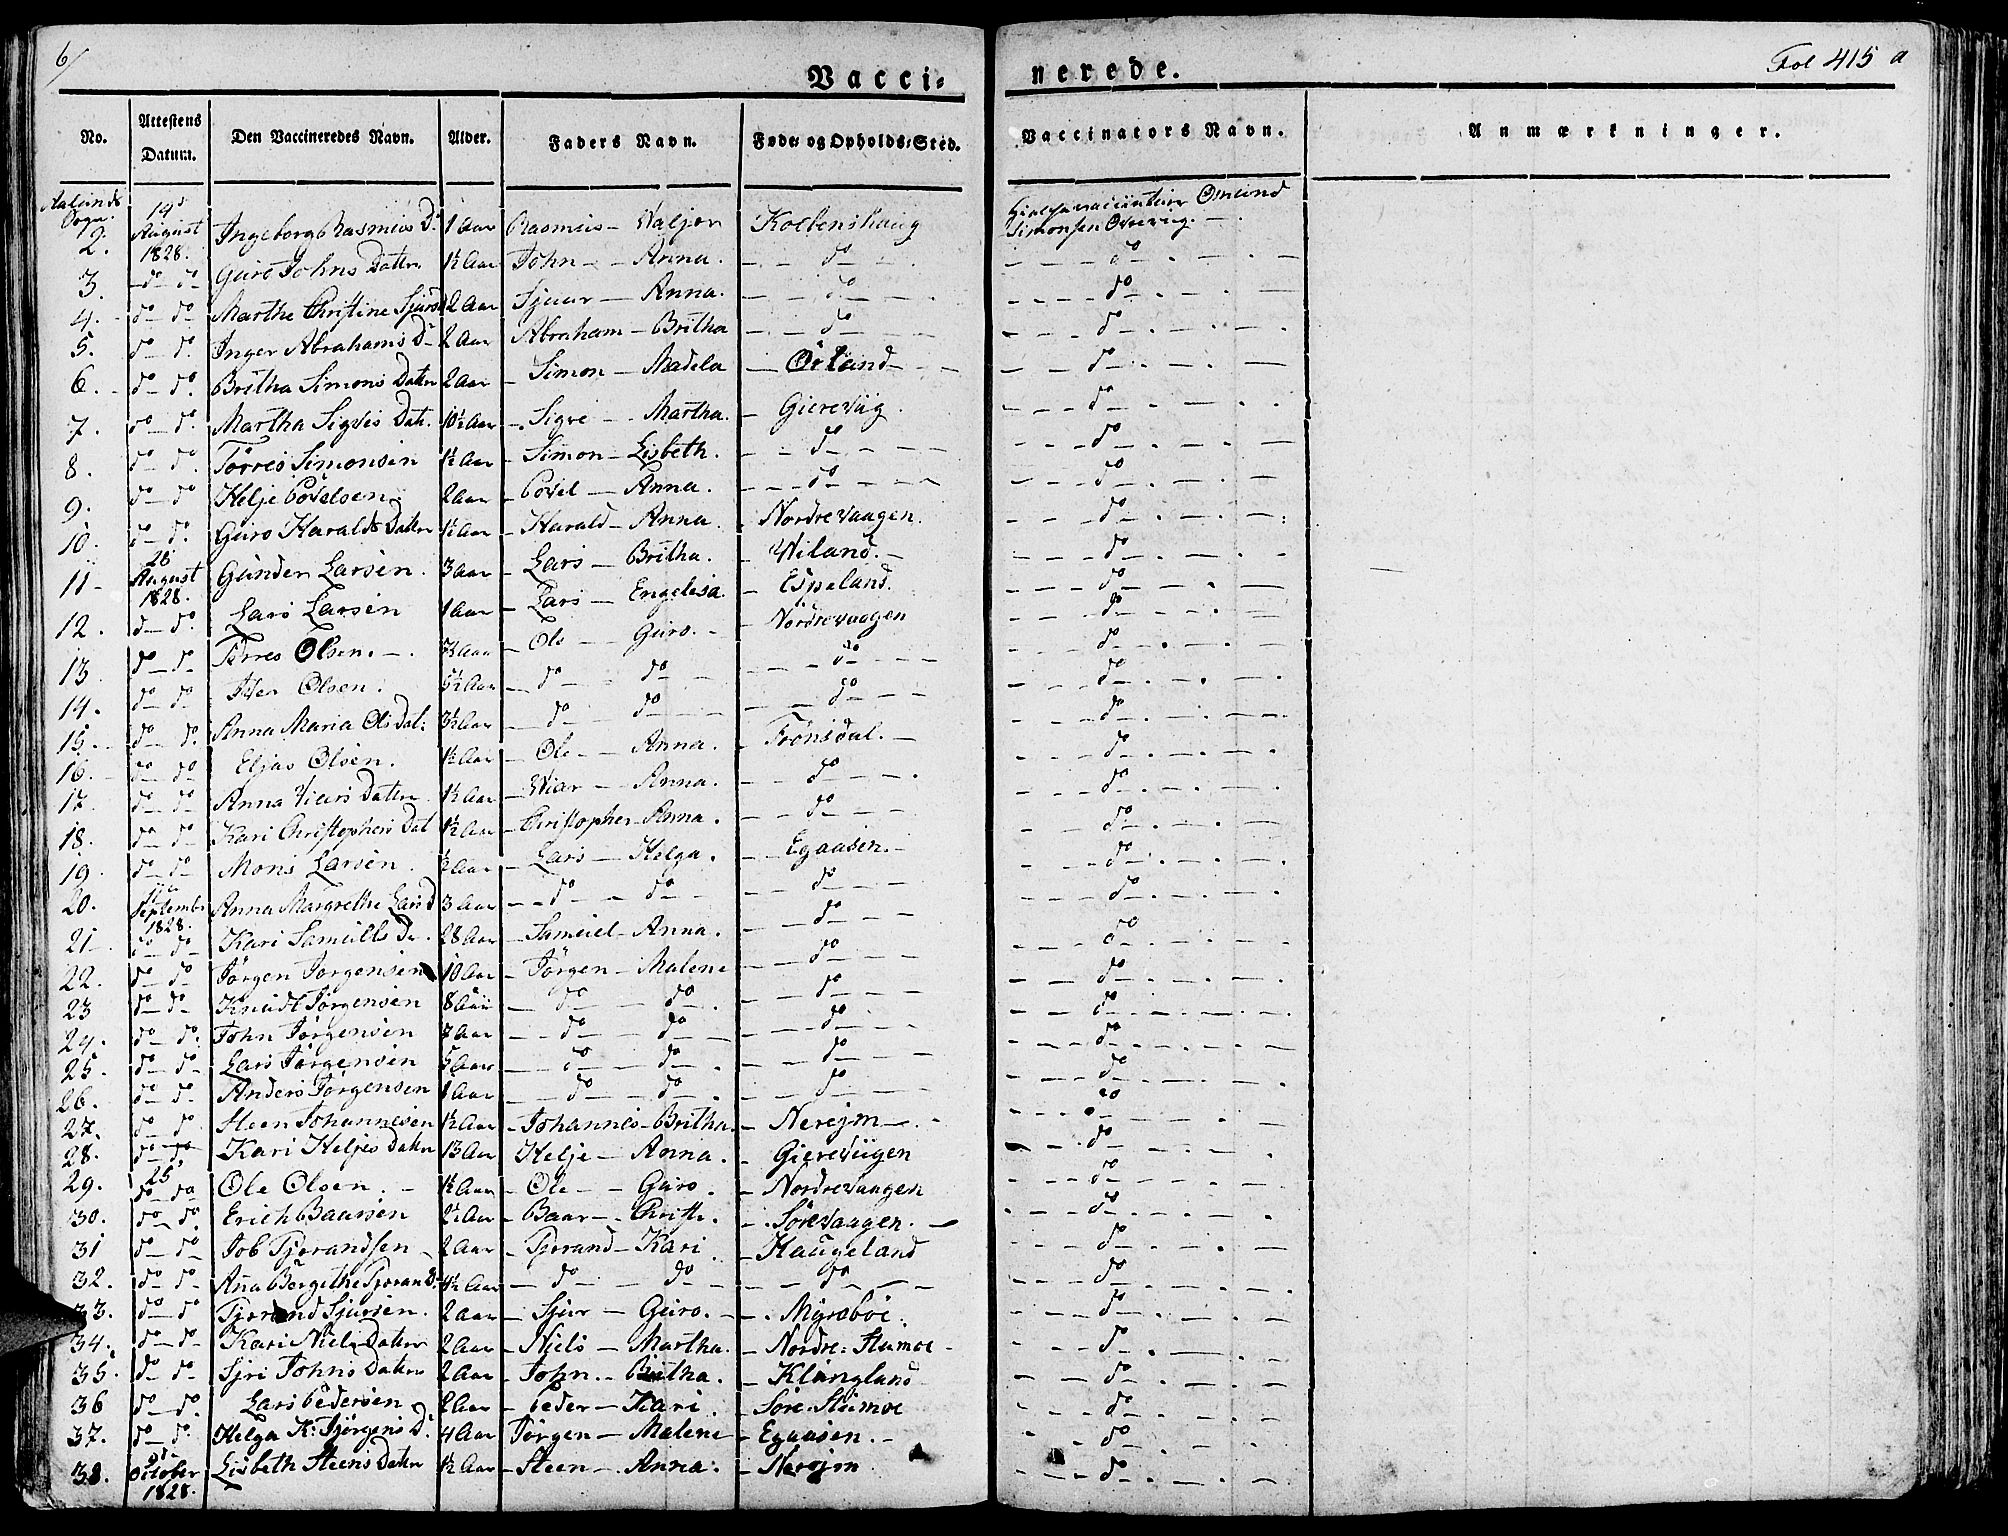 6/
Vacci- nerede.
Fol 415 a
No. Attestens Datum. Den Vaccineredes Navn. Alder. Faders Navn. Føde- og Opholds-Sted. Vaccinators Navn. Anmærkninger.
Sogn.
2. 14d August 1828. Ingeborg Rasmus D. 1 Aar Rasmus - Valjør Kolbenshaug Omund Simonsen
3. do do Guro Johns Datter 1½ Aar John - Anna. do do
4. do do Marthe Christine Sjurs 12 Aar Sjuur - Anna. do do
5. do do Inger Abrahams D 2 Aar Abraham - Britha do do
6. do do Britha Simons Datter 2 Aar Simon - Madela Østand do
7. do do Martha Sigvis Datt. 10½ Aar Sigvi - Martha. Gierevüg. do
8. do do Törres Simonsen 1½ Aar Simon - Lisbeth. do do
9. do do Helje Povelsen 2 Aar Povel - Anna. do do
10. do do Guro Haralds Datter 1½ Aar Harald - Anna. Nordrevaagen. do
11 28 August 1828. Gunder Larsen. 3 Aar Lars - Britha. Wiland. do
Lars Larsen 1 Aar Lars - Engelisa. Espeland. do
12. do do Törres Olsen. 7½ Aar Ole - Guro. Nordrevaagen do
13. do do Iver Olsen. 5½ Aar do do do do
14. do do Anna Maria Ols Dat: 3½ Aar do do do do
15. do do Eljas Olsen. 1½ Aar Ole - Anna. Frönsdal. do
16. do do Anna Viars Datter 1½ Aar Wiar - Anna. do do
17. do do Kari Christophers Dat 1½ Aar Christopher - Anna. do do
18. do do Mons Larsen. ½ Aar Lars - Helga. Egaasen. do
19. do do
20. September 1828. Anna Margrethe Lars D 3 Aar do do do do
21 do do Kari Samuels D. 28 Aar Samuel - Anna. do do
22. do do Jörgen Jorgensen 10 Aar Jörgen - Malene do do
23 do do Knudt Jörgensen 8 Aar do do do do
24. do do John Jörgensen 7 Aar do do do do
25. do do Lars Jörgensen 5 Aar do do do do
26. do do Anders Jörgensen 1 Aar do do do do
27. do do Steen Johannesen 1½ Aar Johannes - Britha. Nerejm do
28. do do Kari Heljes Datter 13 Aar Helje - Anna. Gierevügen do
29. 25 do do Ole Olsen. 1½ Aar Ole - Guro. Nordrevaagen do
30. do do Erich Baarsen 2½ Aar Baar - Christi. Sörevaagen. do
31 do do Job Tjorandsen 2 Aar Tjorand - Kari Haugeland do
32. do do Ana Börgethe Tjoran D 4½ Aar do do do do
33. do do Tjorand Sjursen. 2 Aar Sjur - Guro. Myreböe. do
34. do do Kari Niels Datter 2 Aar Niels - Martha. Nordre: Stumoe do
35. do do Sjri Johns Datter 2 Aar John - Britha. Klüngland do
36 do do Lars Pedersen 2 Aar Peder - Kari. Söre Stumoe do
37. do do Helga K: Jörgens D. 4 Aar Jörgen - Malene Egaasen. do
38. October 1828. Lisbeth Steens Datter 1½ Aar Steen - Anna. Nerejm do